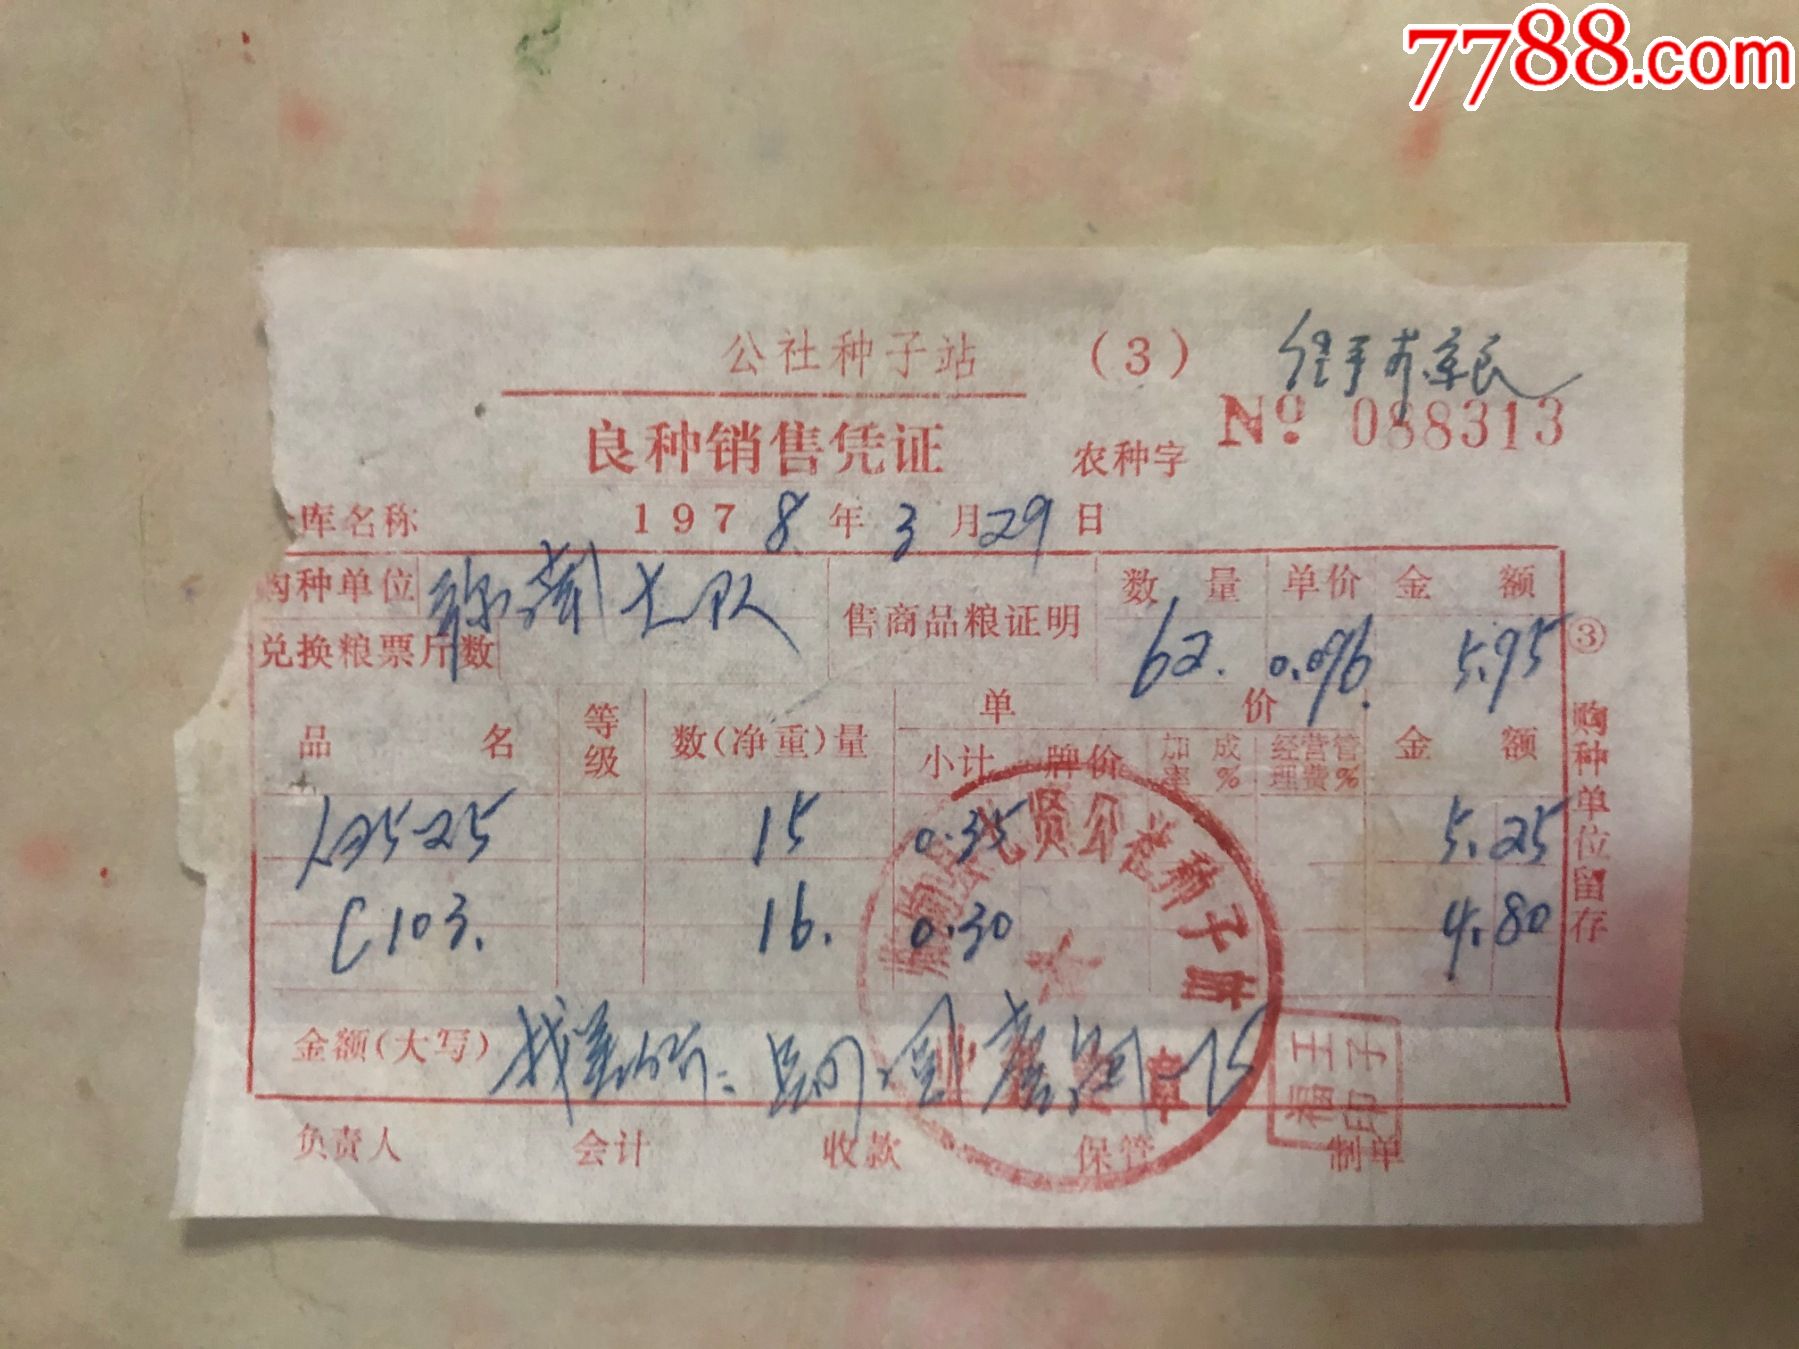 7788.com
公社种子站 (3) 经手
良种销售凭证 农种字 No. 088313
库名称 1978年3月29日
购种单位 大队 售商品粮证明 数量 单价 金额
兑换粮票斤数 62. 0.096 5.95
品名 等级 数(净重)量 单价 金额
小计 牌价 加成率% 经营管理费%
15 0.35 5.25
C103. 16. 0.30 4.80
金额(大写)
负责人 会计 收款 保管 制单
③购种单位留存
贤公社种子库
王福子印